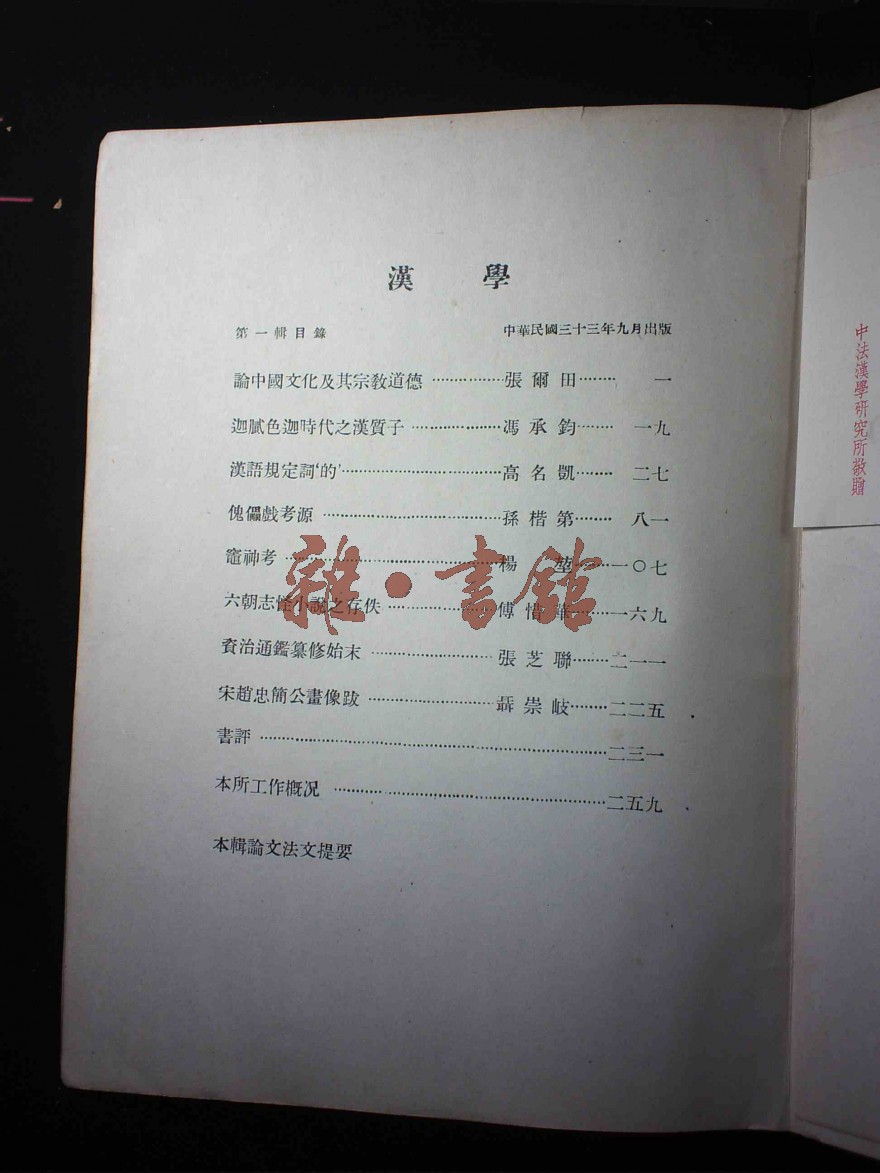 漢學
第一輯目錄 中華民國三十三年九月出版
論中國文化及其宗教道德……………張爾田……一
迦膩色迦時代之漢質子………………馮承鈞……一九
漢語規定詞‘的’……………………………高名凱……二七
傀儡戲考源……………………………孫楷第……八一
竈神考………………………………楊堃……一〇七
六朝志怪小說之存佚………………傅惜華……一六九
資治通鑑纂修始末…………………張芝聯……二一一
宋趙忠簡公畫像跋…………………聶崇岐……二二五
書評……………………………………………………二三一
本所工作概况…………………………………………二五九
本輯論文法文提要
中法漢學研究所敬贈
雜·書館